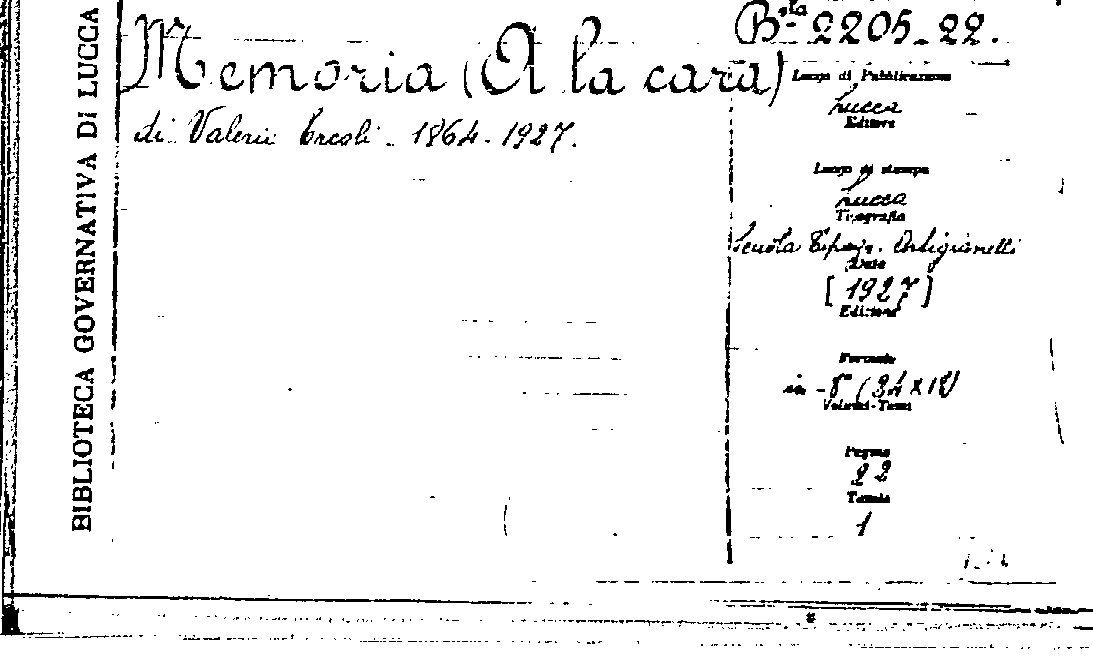 BIBLIOTECA GOVERNATIVA DI LUCCA
Memoria (A la cara)
di Valerio Ercoli - 1864-1927.
B.sta 2205-22.
Luogo di Pubblicazione
Lucca
Editore
Luogo di stampa
Lucca
Tipografia
Scuola Tipogr. Artigianelli
Data
[1927]
Edizione
Formato
in-8° (24x18)
Volumi-Tomi
Pagine
22
Tavole
1